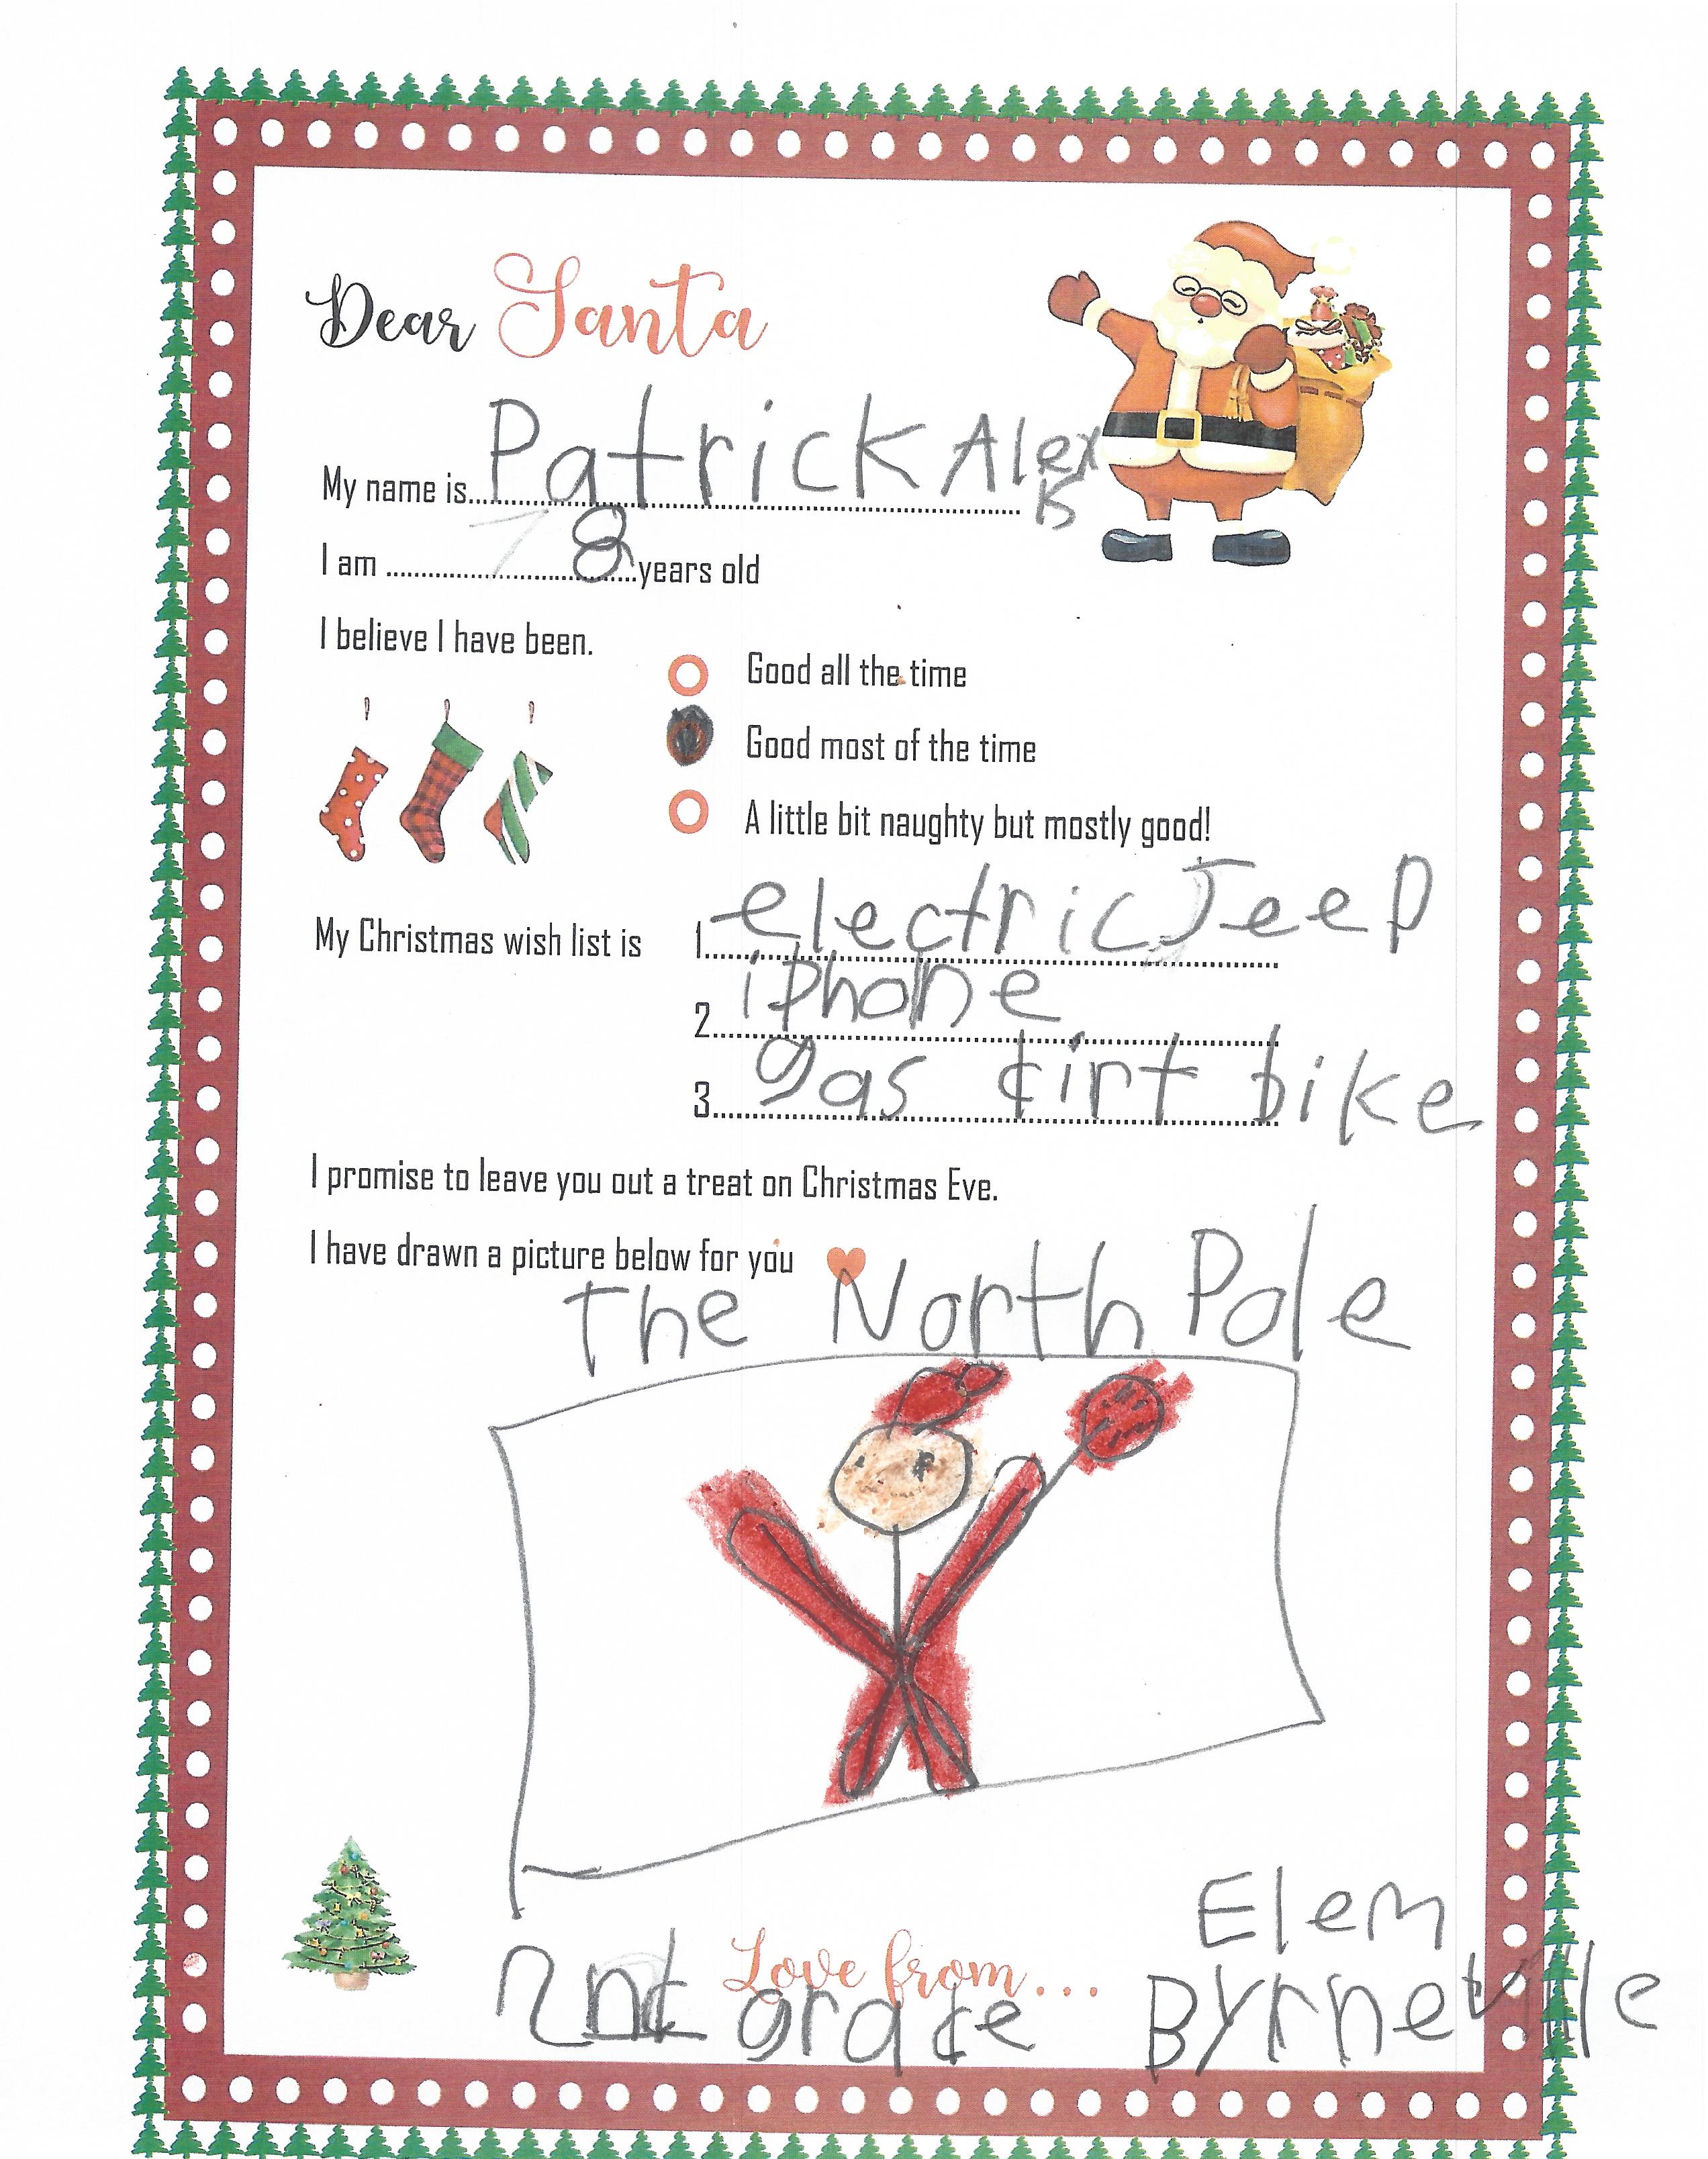 Dear Santa
My name is Patrick Alex
B
I am 8 years old
I believe I have been.
Good all the time
Good most of the time
A little bit naughty but mostly good!
My Christmas wish list is 1. electric Jeep
2. iphone
3. gas dirt bike
I promise to leave you out a treat on Christmas Eve.
I have drawn a picture below for you
The North Pole
Love from...
2nd grade
Elem
Byrneville